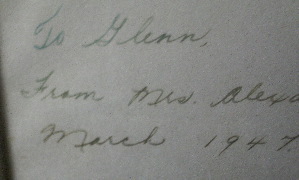 To Glenn,
From Mrs. Alexa
March 1947.